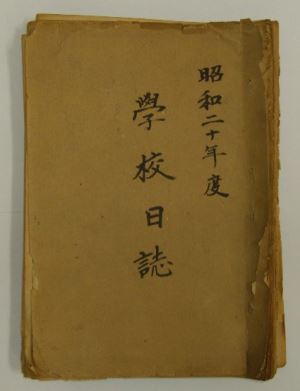 昭和二十年度
學校日誌